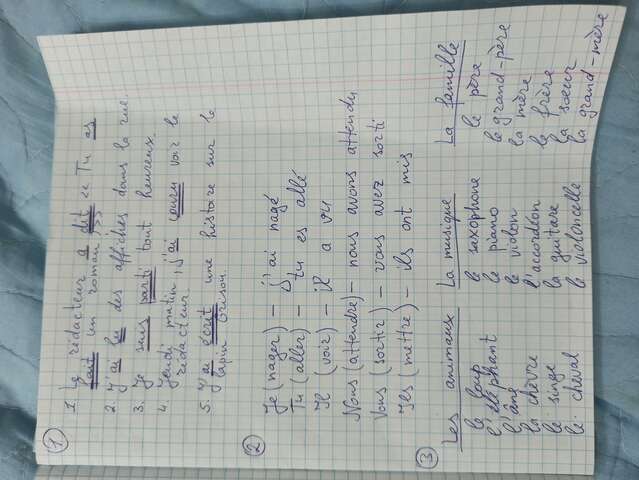 ①
1. Le rédacteur a dit « Tu as
écrit un roman, »
2. J'ai lu des affiches dans la rue.
3. Je suis parti tout heureux.
4. Jeudi matin, j'ai couru voir le
rédacteur.
5. J'ai écrit une histoire sur le
lapin Grison.
②
Je (nager) – j'ai nagé
Tu (aller) – tu es allé
Il (voir) – il a vu
Nous (attendre) – nous avons attendu
Vous (sortir) – vous avez sorti
Ils (mettre) – ils ont mis
③
Les animaux
le loup
l'éléphant
l'âne
la chèvre
le singe
le cheval
La musique
le saxophone
le piano
le violon
l'accordéon
la guitare
le violoncelle
La famille
le père
le grand-père
la mère
le frère
la soeur
la grand-mère